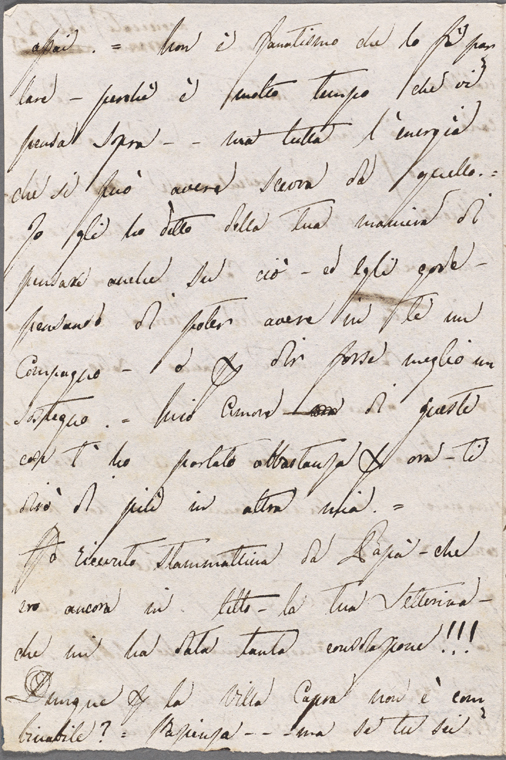 assai. = Non è fanatismo che lo fà par
lare - perché è molto tempo che vi
pensa sopra - - ma tutta l'energia
che si può avere scevra da quello. =
Io gli ho detto della tua maniera di
pensare anche su ciò - ed egli gode -
pensando di poter avere in te un
Compagno - o p dir forse meglio un
sostegno. = Mio Amore di queste
cose t'ho parlato abbastanza p ora - ti
dirò di più in altra mia. =
Hò ricevuto stammattina da Papà - che
ero ancora in letto - la tua Letterina -
che mi ha data tanta consolazione!!!
Dunque p la Villa Capra non è com
binabile? = Pazienza - - - ma se tu sei